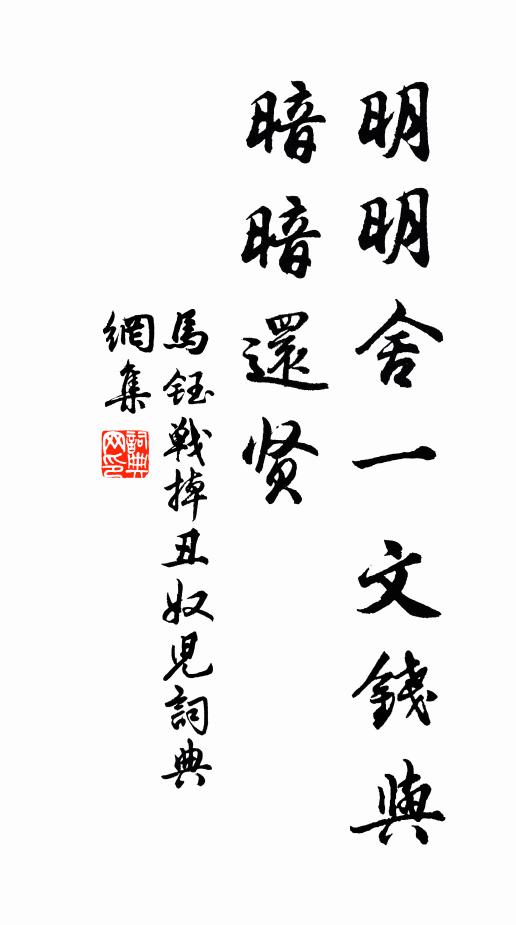 明明舍一文錢與
暗暗還贤
馬鈺戰掉丑奴児詞典
網集
詞典网印